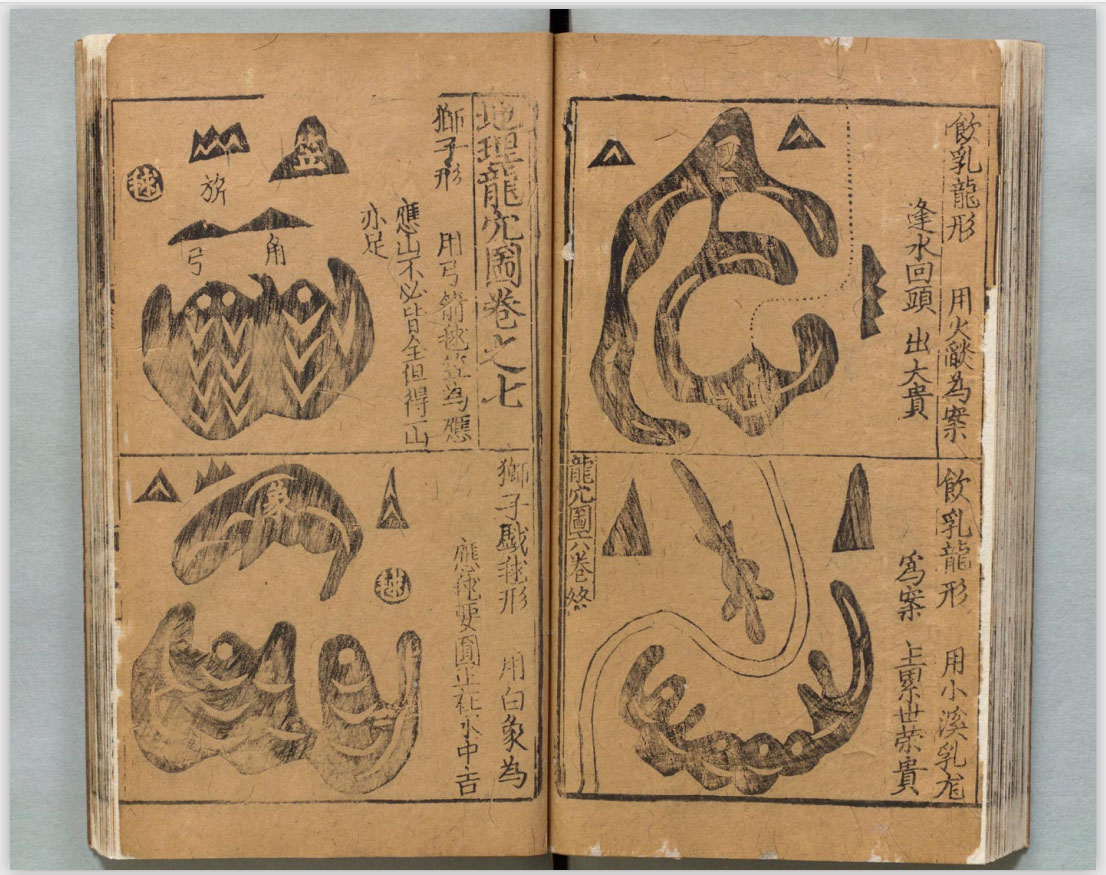 飲乳龍形
用火燄為案
逢水回頭
出大貴
飲乳龍形
用小溪乳
為案
上累世荣貴
龍穴圖六卷終
地理龍穴圖卷之七
獅子形
用弓箭毬笠為應
應山不必皆全但得一山
亦足
笠
毬
旂
角
弓
獅子戱毬形
用白象為
應毬要圓正在水中吉
象
毬